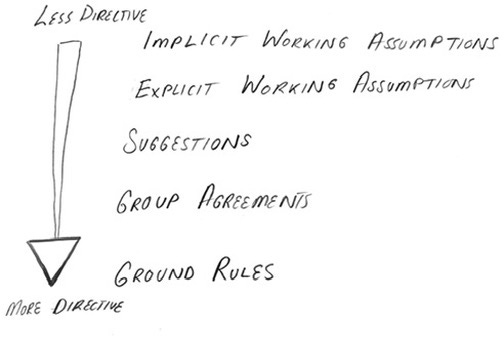 LESS DIRECTIVE
IMPLICIT WORKING ASSUMPTIONS
EXPLICIT WORKING ASSUMPTIONS
SUGGESTIONS
GROUP AGREEMENTS
GROUND RULES
MORE DIRECTIVE